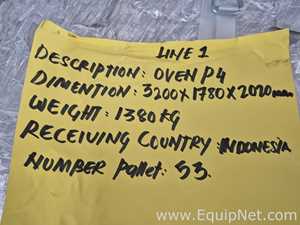 LINE 1
DESCRIPTION: OVEN P4
DIMENTION: 3200X1780X2020mm
WEIGHT: 1380KG
RECEIVING COUNTRY: INDONESIA
NUMBER Pallet: 53.
www.EquipNet.com